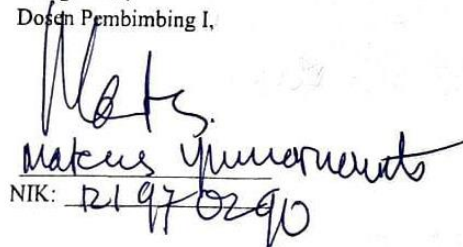 Dosen Pembimbing I,
Mateus Yumarnamto
NIK: 121970290